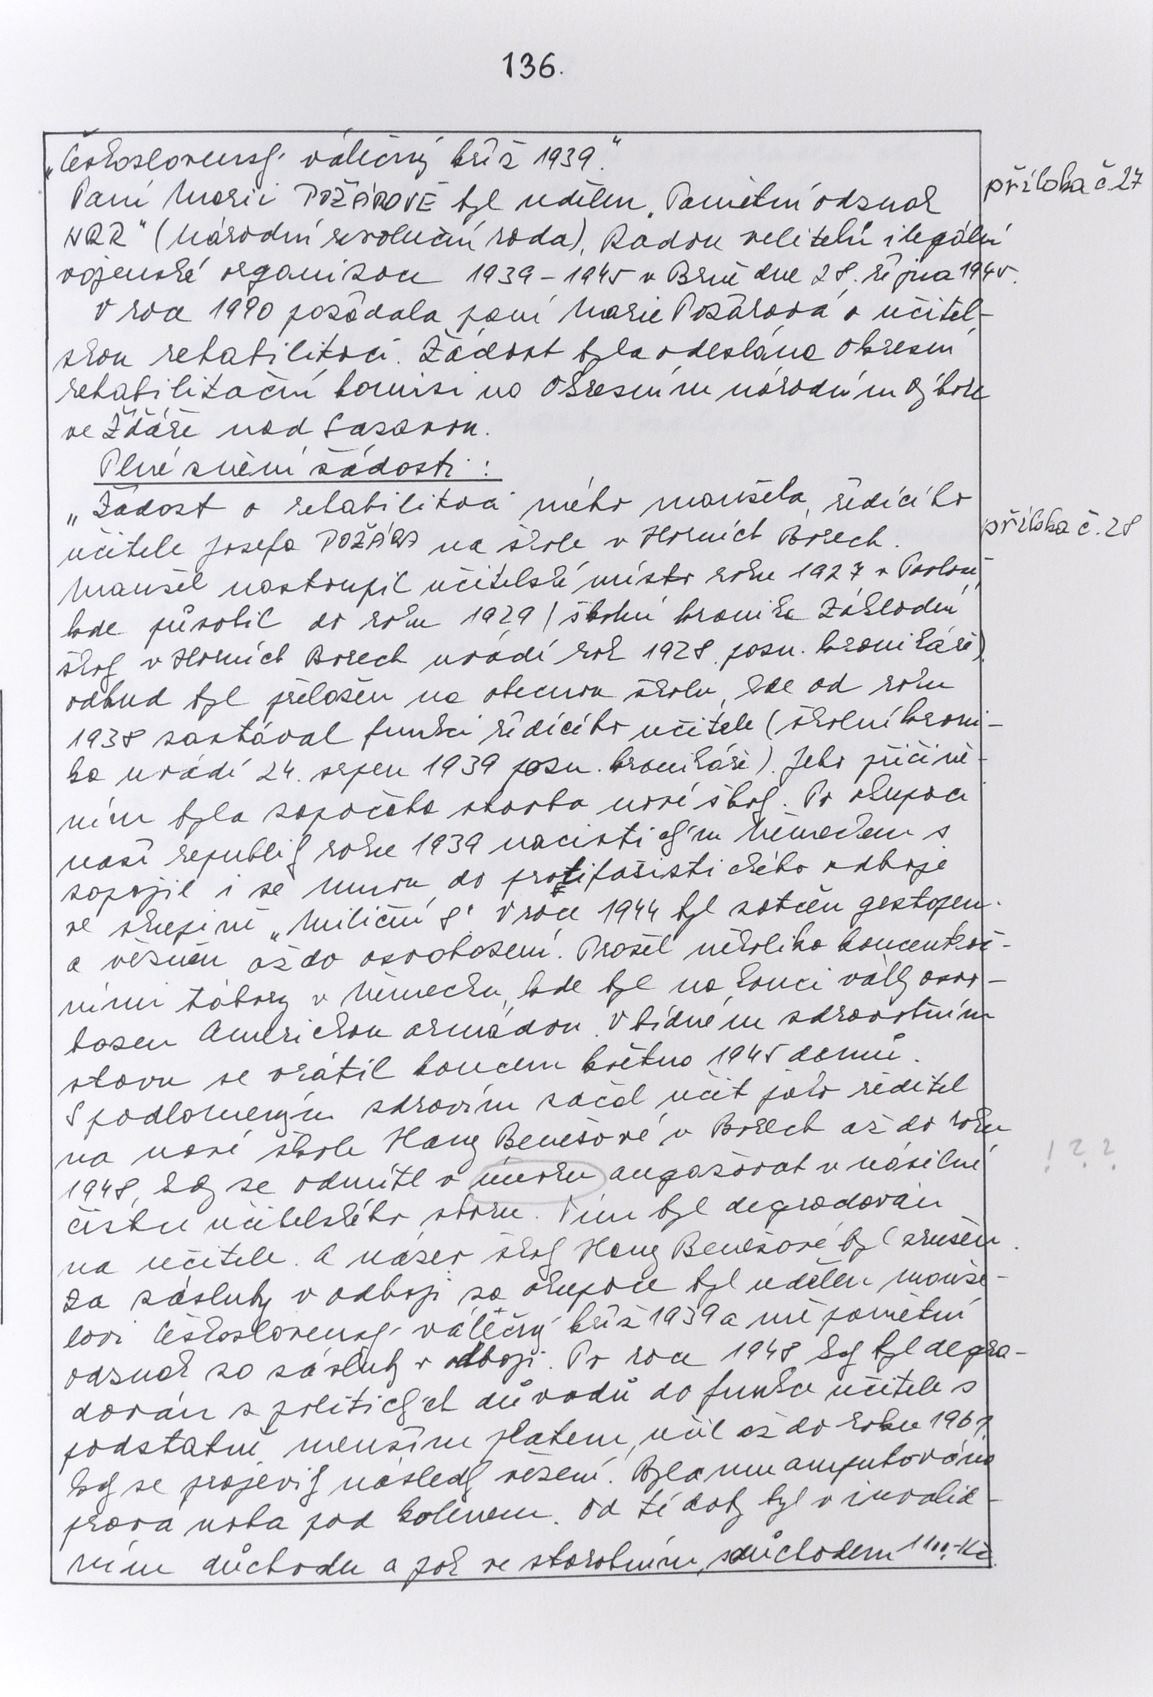 136.
„Československý válečný kříž 1939."
příloha č. 27
Paní Marii POŽÁROVÉ byl udělen „Pamětní odznak
NRR" (Národní revoluční rada), Radou velitelů ilegální
vojenské organizace 1939 – 1945 v Brně dne 28. října 1945.
V roce 1990 požádala paní Marie Požárová o učitel-
skou rehabilitaci. Žádost byla odeslána Okresní
rehabilitační komisi na Okresním národním výboru
ve Žďáře nad Sázavou.
Plné znění žádosti :
„Žádost o rehabilitaci mého manžela, řídícího
příloha č. 28
učitele Josefa POŽÁRA na škole v Horních Borech.
Manžel nastoupil učitelské místo roku 1927 v
kde působil do roku 1929 (školní kronika Základní
školy v Horních Borech uvádí rok 1928 pozn. kronikáře)
odkud byl přeložen na obecnou školu, kde od roku
1938 zastával funkci řídícího učitele (školní kroni-
ka uvádí 24. srpen 1939 pozn. kronikáře). Jeho přičině-
ním byla započata stavba nové školy. Po okupaci
naší republiky roku 1939 nacistickým Německem s
zapojil i se mnou do protifašistického odboje
ve skupině „Miliční S". V roce 1944 byl zatčen gestapem
a vězněn až do osvobození. Prošel několika koncentrač-
ními tábory v Německu, kde byl na konci války osvo-
bozen Americkou armádou. V bídném zdravotním
stavu se vrátil koncem května 1945 domů.
S podlomeným zdravím začal učit jako ředitel
na nové škole Hany Benešové v Borech až do roku
! ? ?
1948, kdy se odmítl v únoru angažovat v násilné
čistce učitelského sboru. Tím byl degradován
na učitele. a název školy Hany Benešové byl zrušen.
Za zásluhy v odboji za okupace byl udělen manže-
lovi Československý válečný kříž 1939 a mě pamětní
odznak za zásluhy v odboji. Po roce 1948 kdy byl degra-
dován z politických důvodů do funkce učitele s
podstatně menším platem, učil až do roku 1961
kdy se projevily následky věznění. Byla mu amputována
pravá noha pod kolenem. Od té doby byl v invalid-
ním důchodu a pak ve starobním, s důchodem 1100,-Kč.